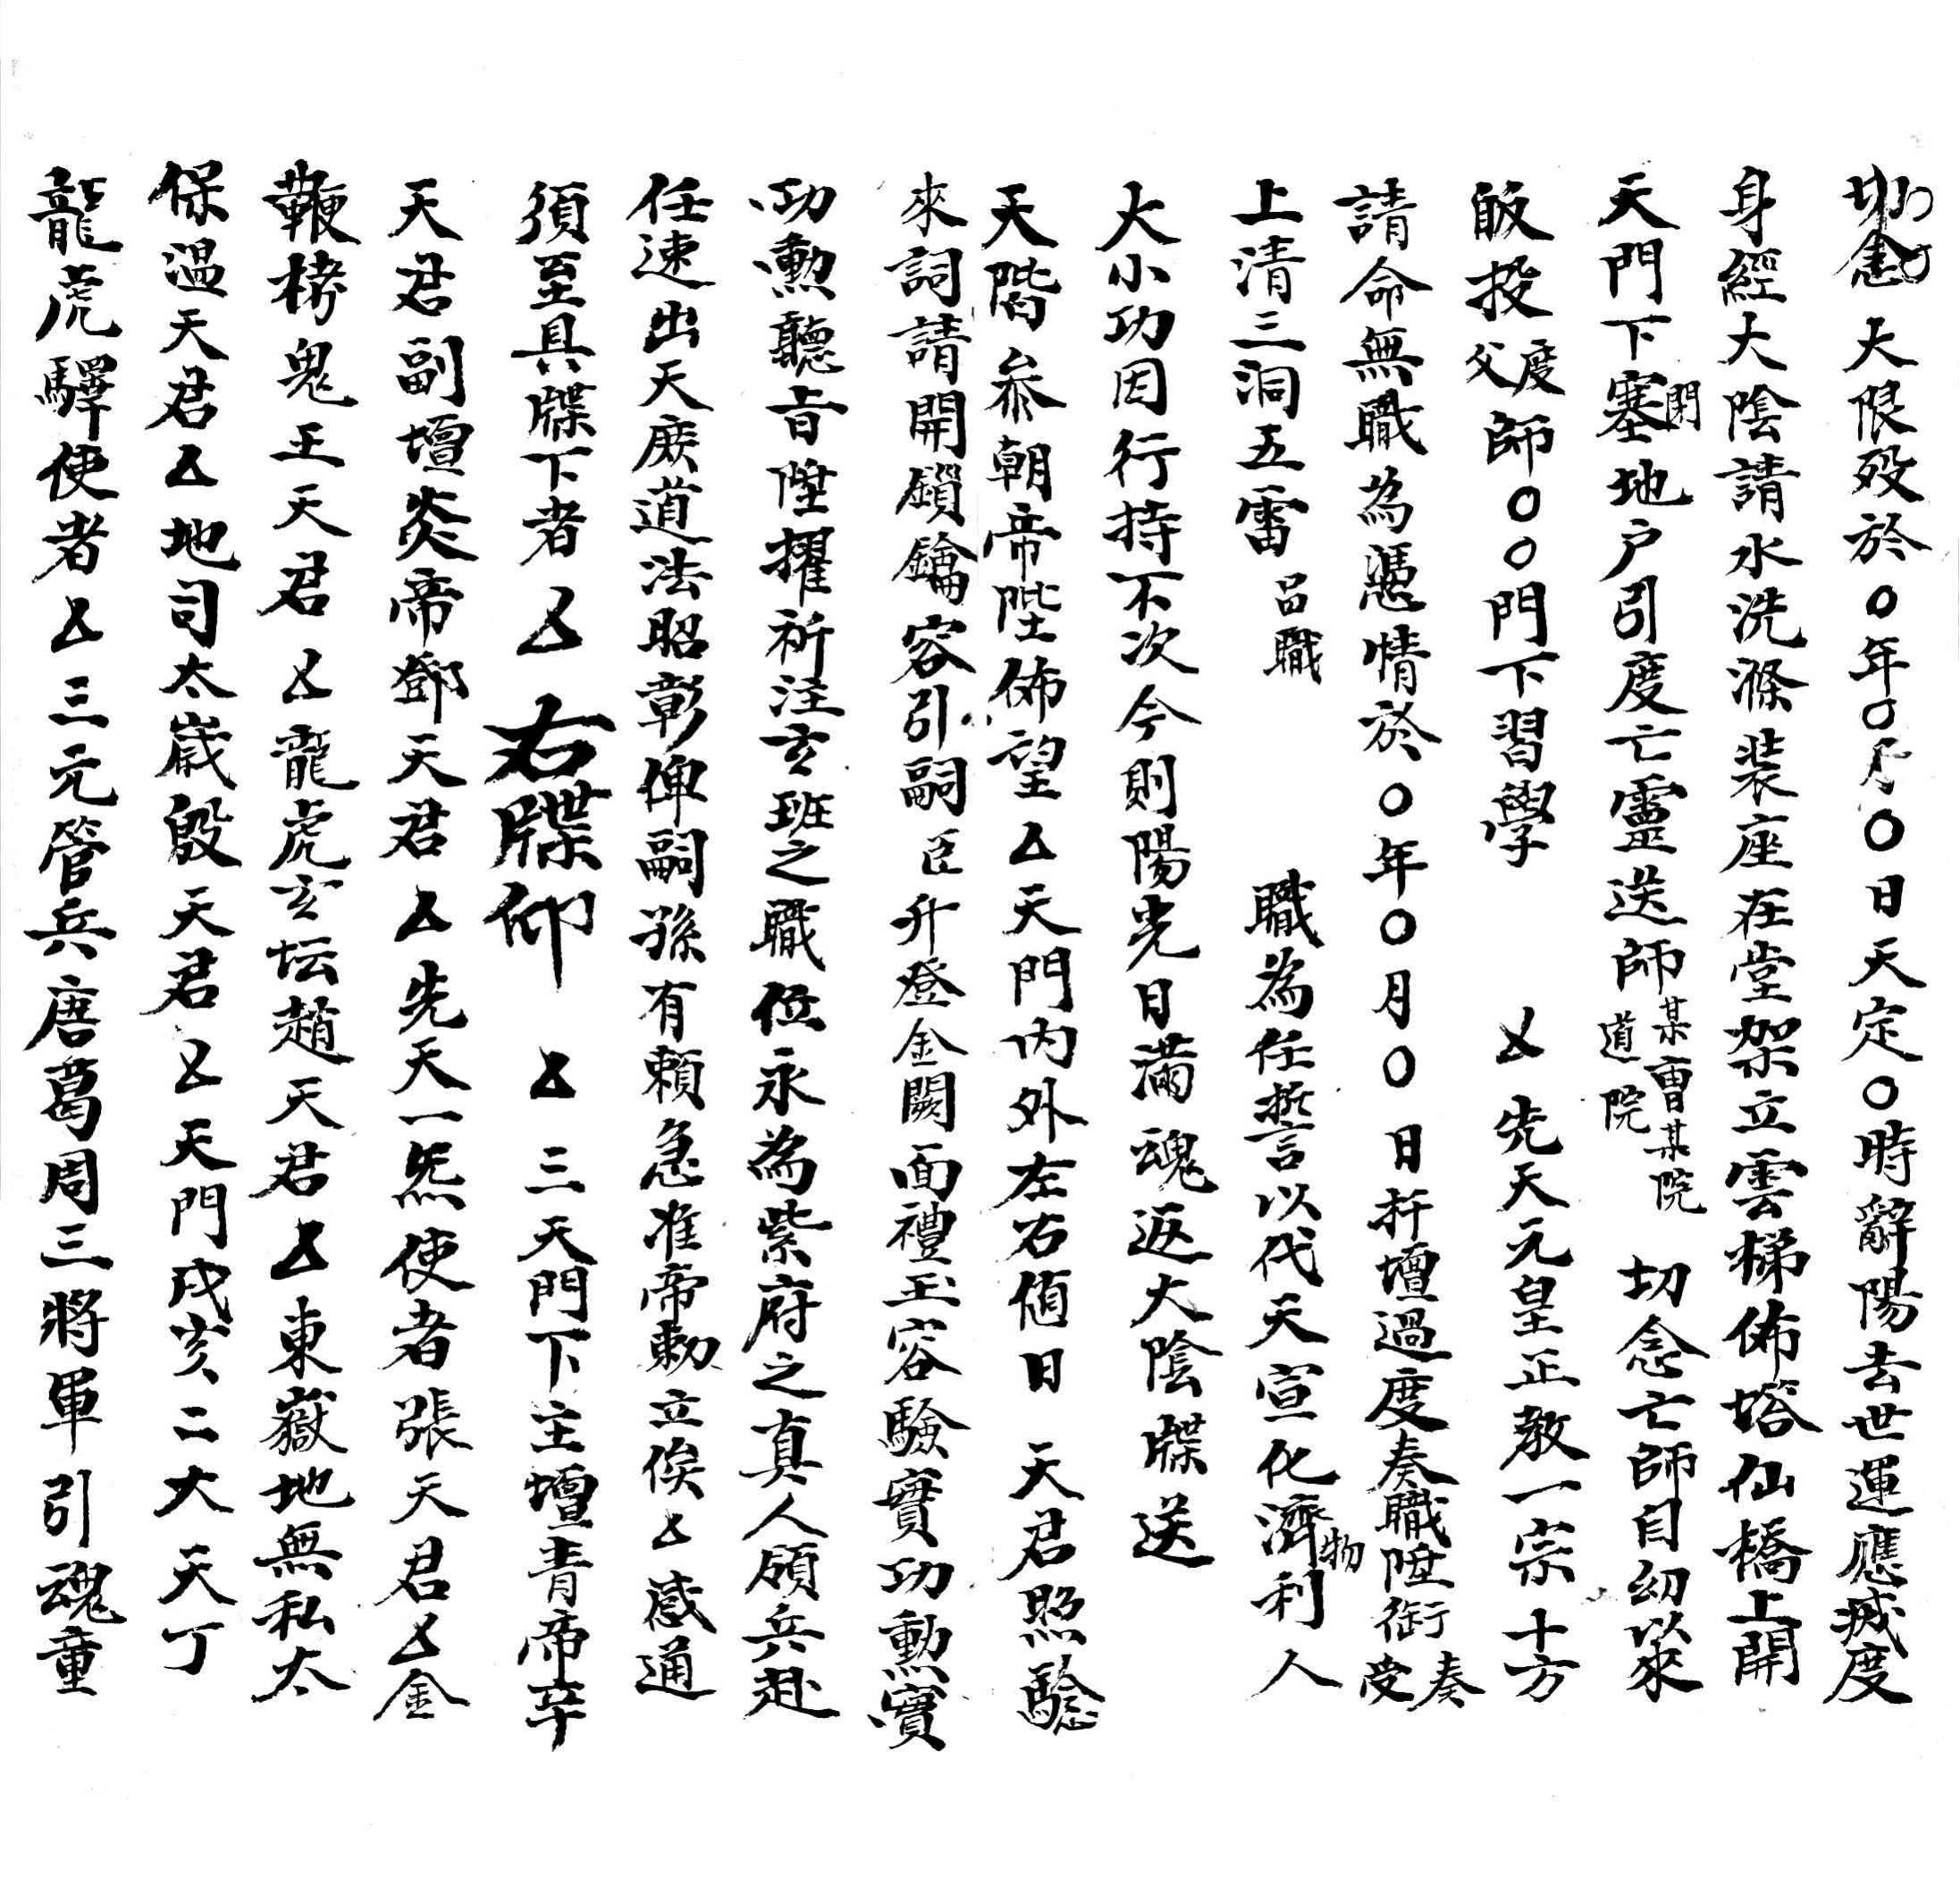 切念　大限歿於〇年〇月〇日天定〇時辭陽去世運應滅度
身經大陰請水洗滌裝座在堂架立雲梯佈塔仙橋上開
天門下塞閉地户引度亡靈送師某曹某院道院　切念亡師自幼以來
皈投度父師〇〇門下習學　△先天元皇正教一宗十方
請命無職為憑情於〇年〇月〇日扦壇過度奏職陞銜奏受
上清三洞五雷品職　職為任誓言以代天宣化濟物利人
大小功因行持不次今則陽光日滿魂返大陰牒送
天階叅朝帝陛佈望△天門内外左右值日　天君照驗
來詞請開鎖鑰容引嗣臣升登金闕面禮玉容驗實功勳實
功勳聽旨陞擢祈注玄班之職位永為紫府之真人領兵赴
任速出天庭道法昭彰俾嗣孫有賴急准帝勅立俟△感通
須至具牒下者△　右牒仰　△三天門下主壇青帝辛
天君副壇炎帝鄧天君△先天一炁使者張天君△金
鞭拷鬼王天君△龍虎玄坛趙天君△東嶽地無私太
保温天君△地司太歲殷天君△天門戌亥二大天丁
龍虎驛使者△三元管兵唐葛周三將軍引魂童